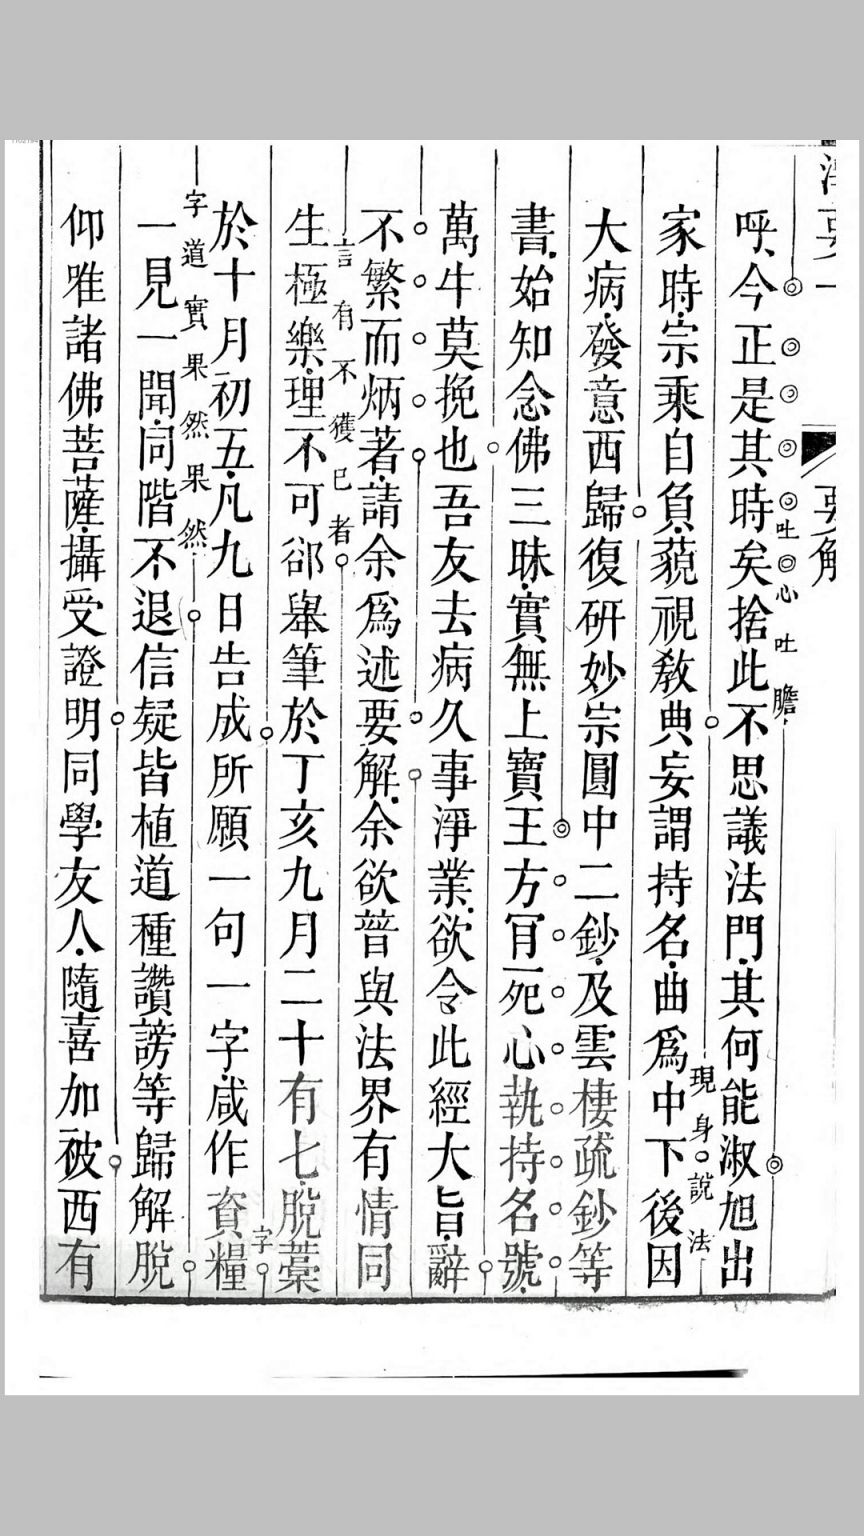 要解
呼今正是其時矣捨此不思議法門其何能淑旭出
吐心吐膽
家時宗乘自負藐視教典妄謂持名曲爲中下後因
現身說法
大病發意西歸復研妙宗圓中二鈔及雲棲疏鈔等
書始知念佛三昧實無上寶王方肎死心執持名號
萬牛莫挽也吾友去病久事淨業欲令此經大旨辭
不繁而炳著請余爲述要解余欲普與法界有情同
言有不獲已者
生極樂理不可郤舉筆於丁亥九月二十有七脫藁
於十月初五凡九日告成所願一句一字咸作資糧
字
字道實果然果然
一見一聞同階不退信疑皆植道種讚謗等歸解脫
仰唯諸佛菩薩攝受證明同學友人隨喜加被西有